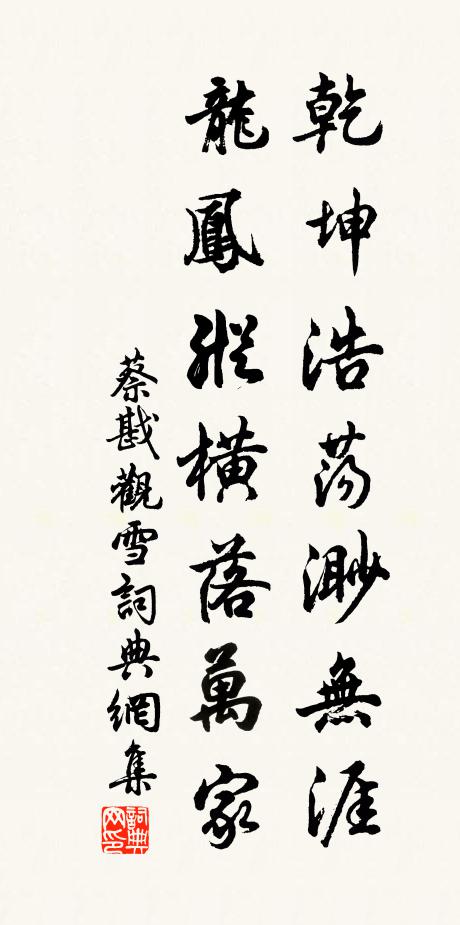 乾坤浩蕩渺無涯
龍鳳縱橫落萬家
蔡戡觀雪詞典網集
詞典网印